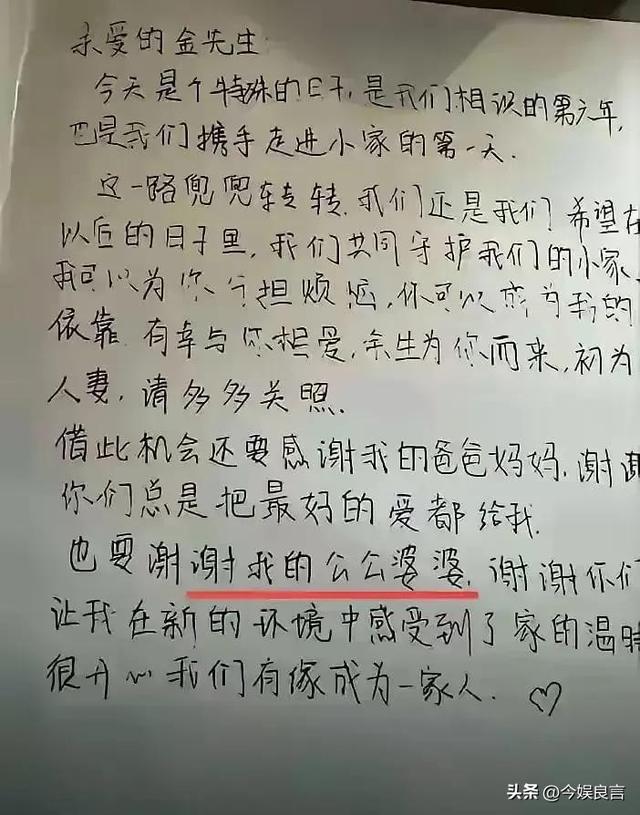 亲爱的金先生:
今天是个特殊的日子,是我们相识的第六年,
也是我们携手走进小家的第一天.
这一路兜兜转转.我们还是我们.希望在
以后的日子里,我们共同守护我们的小家、
我可以为你分担烦恼,你可以成为我的
依靠.有幸与你相爱,余生为你而来,初为
人妻,请多多关照.
借此机会还要感谢我的爸爸妈妈.谢谢
你们总是把最好的爱都给我.
也要谢谢我的公公婆婆.谢谢你们
让我在新的环境中感受到了家的温暖
很开心我们有缘成为一家人.♡
头条 @今娱良言